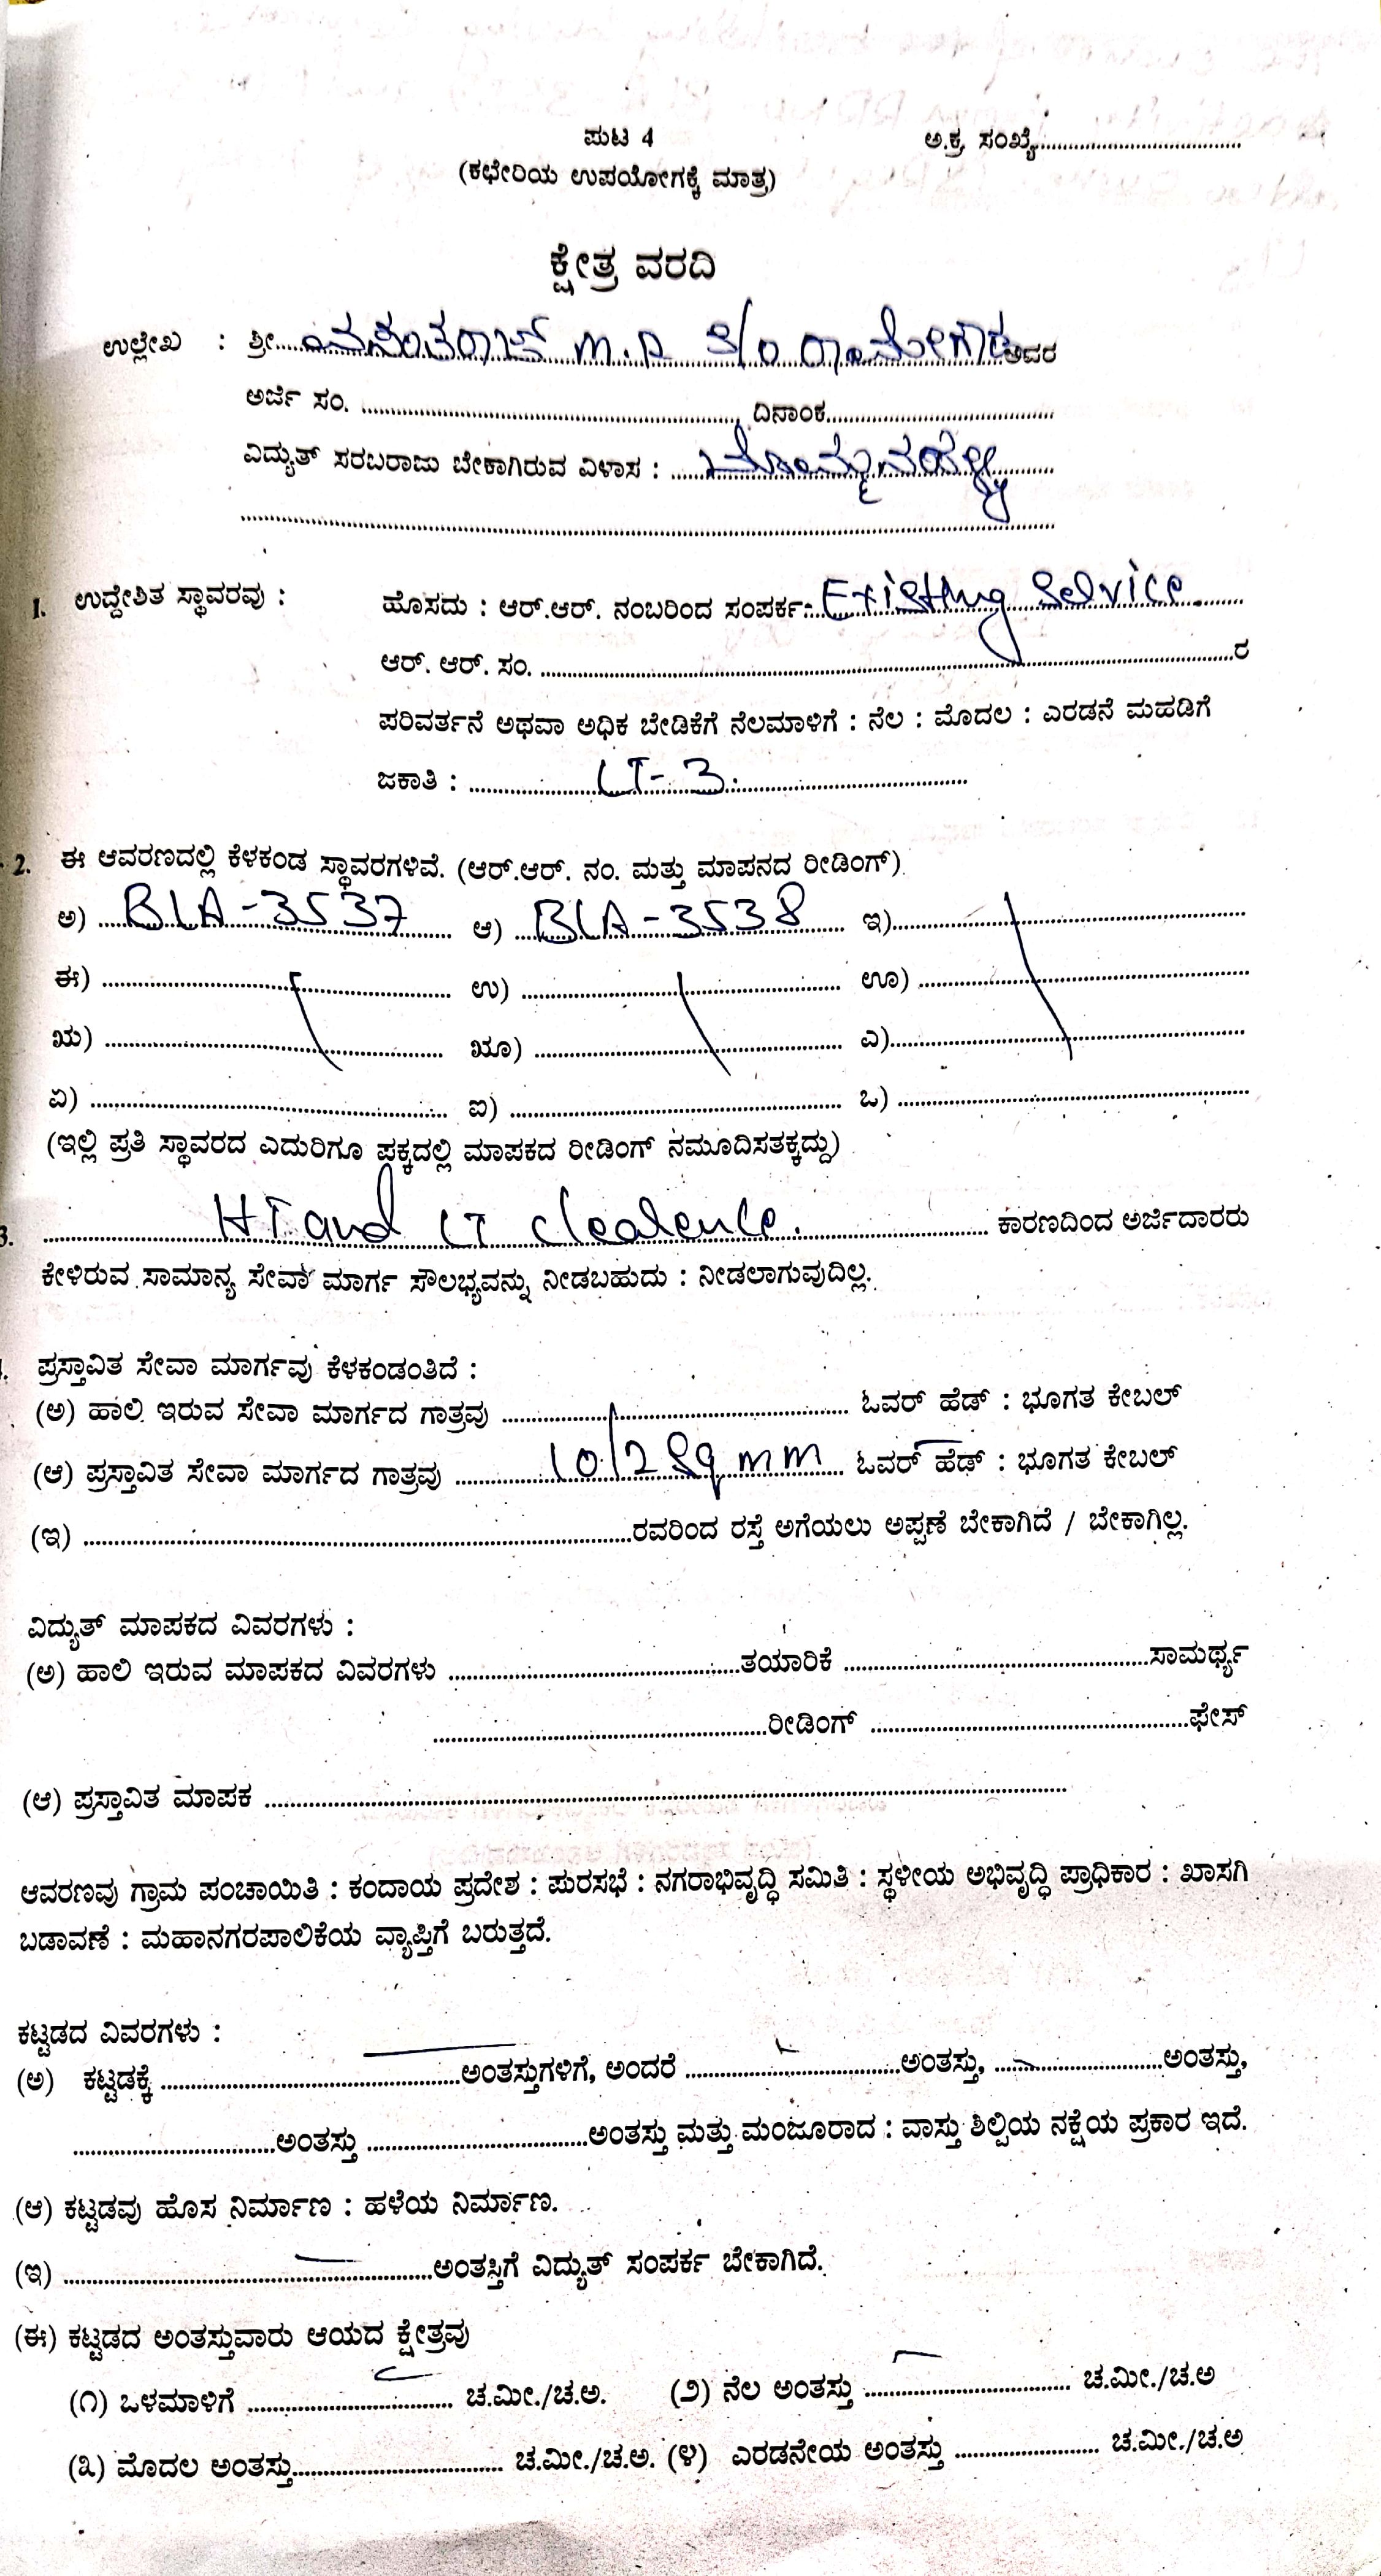 ಪುಟ 4
ಅ.ಕ್ರ ಸಂಖ್ಯೆ....................
(ಕಛೇರಿಯ ಉಪಯೋಗಕ್ಕೆ ಮಾತ್ರ)
ಕ್ಷೇತ್ರ ವರದಿ
ಉಲ್ಲೇಖ : ಶ್ರೀ.... M.R S/o ರಾಮೇಗೌಡ ಅವರ
ಅರ್ಜಿ ಸಂ. .................... ದಿನಾಂಕ....................
ವಿದ್ಯುತ್ ಸರಬರಾಜು ಬೇಕಾಗಿರುವ ವಿಳಾಸ : ....................
1. ಉದ್ದೇಶಿತ ಸ್ಥಾವರವು : ಹೊಸದು : ಆರ್.ಆರ್. ನಂಬರಿಂದ ಸಂಪರ್ಕ:- Existing Service
ಆರ್. ಆರ್. ಸಂ. ....................ರ
ಪರಿವರ್ತನೆ ಅಥವಾ ಅಧಿಕ ಬೇಡಿಕೆಗೆ ನೆಲಮಾಳಿಗೆ : ನೆಲ : ಮೊದಲ : ಎರಡನೆ ಮಹಡಿಗೆ
ಜಕಾತಿ : LT-3
2. ಈ ಆವರಣದಲ್ಲಿ ಕೆಳಕಂಡ ಸ್ಥಾವರಗಳಿವೆ. (ಆರ್.ಆರ್. ನಂ. ಮತ್ತು ಮಾಪನದ ರೀಡಿಂಗ್)
ಅ) BLA-3537 ಆ) BLA-3538 ಇ)....................
ಈ) .................... ಉ) .................... ಊ) ....................
ಋ) .................... ೠ) .................... ಎ)....................
ಏ) .................... ಐ) .................... ಒ) ....................
(ಇಲ್ಲಿ ಪ್ರತಿ ಸ್ಥಾವರದ ಎದುರಿಗೂ ಪಕ್ಕದಲ್ಲಿ ಮಾಪಕದ ರೀಡಿಂಗ್ ನಮೂದಿಸತಕ್ಕದ್ದು)
3. HT and LT clearence. .................... ಕಾರಣದಿಂದ ಅರ್ಜಿದಾರರು
ಕೇಳಿರುವ ಸಾಮಾನ್ಯ ಸೇವಾ ಮಾರ್ಗ ಸೌಲಭ್ಯವನ್ನು ನೀಡಬಹುದು : ನೀಡಲಾಗುವುದಿಲ್ಲ.
ಪ್ರಸ್ತಾವಿತ ಸೇವಾ ಮಾರ್ಗವು ಕೆಳಕಂಡಂತಿದೆ :
(ಅ) ಹಾಲಿ ಇರುವ ಸೇವಾ ಮಾರ್ಗದ ಗಾತ್ರವು .................... ಓವರ್ ಹೆಡ್ : ಭೂಗತ ಕೇಬಲ್
(ಆ) ಪ್ರಸ್ತಾವಿತ ಸೇವಾ ಮಾರ್ಗದ ಗಾತ್ರವು 10/2 Sq mm ಓವರ್ ಹೆಡ್ : ಭೂಗತ ಕೇಬಲ್
(ಇ) ....................ರವರಿಂದ ರಸ್ತೆ ಅಗೆಯಲು ಅಪ್ಪಣೆ ಬೇಕಾಗಿದೆ / ಬೇಕಾಗಿಲ್ಲ.
ವಿದ್ಯುತ್ ಮಾಪಕದ ವಿವರಗಳು :
(ಅ) ಹಾಲಿ ಇರುವ ಮಾಪಕದ ವಿವರಗಳು ....................ತಯಾರಿಕೆ ....................ಸಾಮರ್ಥ್ಯ
....................ರೀಡಿಂಗ್ ....................ಫೇಸ್
(ಆ) ಪ್ರಸ್ತಾವಿತ ಮಾಪಕ ....................
ಆವರಣವು ಗ್ರಾಮ ಪಂಚಾಯಿತಿ : ಕಂದಾಯ ಪ್ರದೇಶ : ಪುರಸಭೆ : ನಗರಾಭಿವೃದ್ಧಿ ಸಮಿತಿ : ಸ್ಥಳೀಯ ಅಭಿವೃದ್ಧಿ ಪ್ರಾಧಿಕಾರ : ಖಾಸಗಿ
ಬಡಾವಣೆ : ಮಹಾನಗರಪಾಲಿಕೆಯ ವ್ಯಾಪ್ತಿಗೆ ಬರುತ್ತದೆ.
ಕಟ್ಟಡದ ವಿವರಗಳು :
(ಅ) ಕಟ್ಟಡಕ್ಕೆ ....................ಅಂತಸ್ತುಗಳಿಗೆ, ಅಂದರೆ ....................ಅಂತಸ್ತು, ....................ಅಂತಸ್ತು,
....................ಅಂತಸ್ತು ....................ಅಂತಸ್ತು ಮತ್ತು ಮಂಜೂರಾದ : ವಾಸ್ತು ಶಿಲ್ಪಿಯ ನಕ್ಷೆಯ ಪ್ರಕಾರ ಇದೆ.
(ಆ) ಕಟ್ಟಡವು ಹೊಸ ನಿರ್ಮಾಣ : ಹಳೆಯ ನಿರ್ಮಾಣ.
(ಇ) ....................ಅಂತಸ್ತಿಗೆ ವಿದ್ಯುತ್ ಸಂಪರ್ಕ ಬೇಕಾಗಿದೆ.
(ಈ) ಕಟ್ಟಡದ ಅಂತಸ್ತುವಾರು ಆಯದ ಕ್ಷೇತ್ರವು
(೧) ಒಳಮಾಳಿಗೆ .................... ಚ.ಮೀ./ಚ.ಅ. (೨) ನೆಲ ಅಂತಸ್ತು .................... ಚ.ಮೀ./ಚ.ಅ
(೩) ಮೊದಲ ಅಂತಸ್ತು.................... ಚ.ಮೀ./ಚ.ಅ. (೪) ಎರಡನೇಯ ಅಂತಸ್ತು .................... ಚ.ಮೀ./ಚ.ಅ